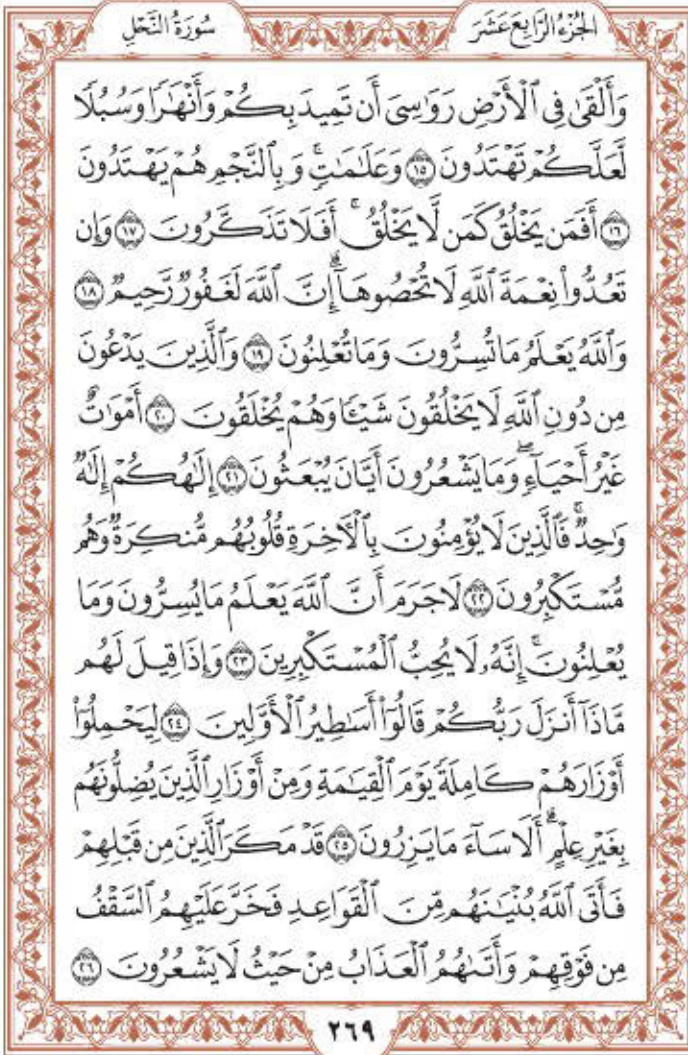 الجُزْءُ الرَّابِعَ عَشَرَ
سُورَةُ النَّحْلِ
وَأَلْقَىٰ فِى ٱلْأَرْضِ رَوَٰسِىَ أَن تَمِيدَ بِكُمْ وَأَنْهَٰرًا وَسُبُلًا
لَّعَلَّكُمْ تَهْتَدُونَ ١٥ وَعَلَٰمَٰتٍ ۚ وَبِٱلنَّجْمِ هُمْ يَهْتَدُونَ
١٦ أَفَمَن يَخْلُقُ كَمَن لَّا يَخْلُقُ ۚ أَفَلَا تَذَكَّرُونَ ١٧ وَإِن
تَعُدُّوا۟ نِعْمَةَ ٱللَّهِ لَا تُحْصُوهَآ ۗ إِنَّ ٱللَّهَ لَغَفُورٌ رَّحِيمٌ ١٨
وَٱللَّهُ يَعْلَمُ مَا تُسِرُّونَ وَمَا تُعْلِنُونَ ١٩ وَٱلَّذِينَ يَدْعُونَ
مِن دُونِ ٱللَّهِ لَا يَخْلُقُونَ شَيْـًٔا وَهُمْ يُخْلَقُونَ ٢٠ أَمْوَٰتٌ
غَيْرُ أَحْيَآءٍ ۖ وَمَا يَشْعُرُونَ أَيَّانَ يُبْعَثُونَ ٢١ إِلَٰهُكُمْ إِلَٰهٌ
وَٰحِدٌ ۚ فَٱلَّذِينَ لَا يُؤْمِنُونَ بِٱلْـَٔاخِرَةِ قُلُوبُهُم مُّنكِرَةٌ وَهُم
مُّسْتَكْبِرُونَ ٢٢ لَا جَرَمَ أَنَّ ٱللَّهَ يَعْلَمُ مَا يُسِرُّونَ وَمَا
يُعْلِنُونَ ۚ إِنَّهُۥ لَا يُحِبُّ ٱلْمُسْتَكْبِرِينَ ٢٣ وَإِذَا قِيلَ لَهُم
مَّاذَآ أَنزَلَ رَبُّكُمْ قَالُوٓا۟ أَسَٰطِيرُ ٱلْأَوَّلِينَ ٢٤ لِيَحْمِلُوٓا۟
أَوْزَارَهُمْ كَامِلَةً يَوْمَ ٱلْقِيَٰمَةِ وَمِنْ أَوْزَارِ ٱلَّذِينَ يُضِلُّونَهُم
بِغَيْرِ عِلْمٍ ۗ أَلَا سَآءَ مَا يَزِرُونَ ٢٥ قَدْ مَكَرَ ٱلَّذِينَ مِن قَبْلِهِمْ
فَأَتَى ٱللَّهُ بُنْيَٰنَهُم مِّنَ ٱلْقَوَاعِدِ فَخَرَّ عَلَيْهِمُ ٱلسَّقْفُ
مِن فَوْقِهِمْ وَأَتَىٰهُمُ ٱلْعَذَابُ مِنْ حَيْثُ لَا يَشْعُرُونَ ٢٦
٢٦٩